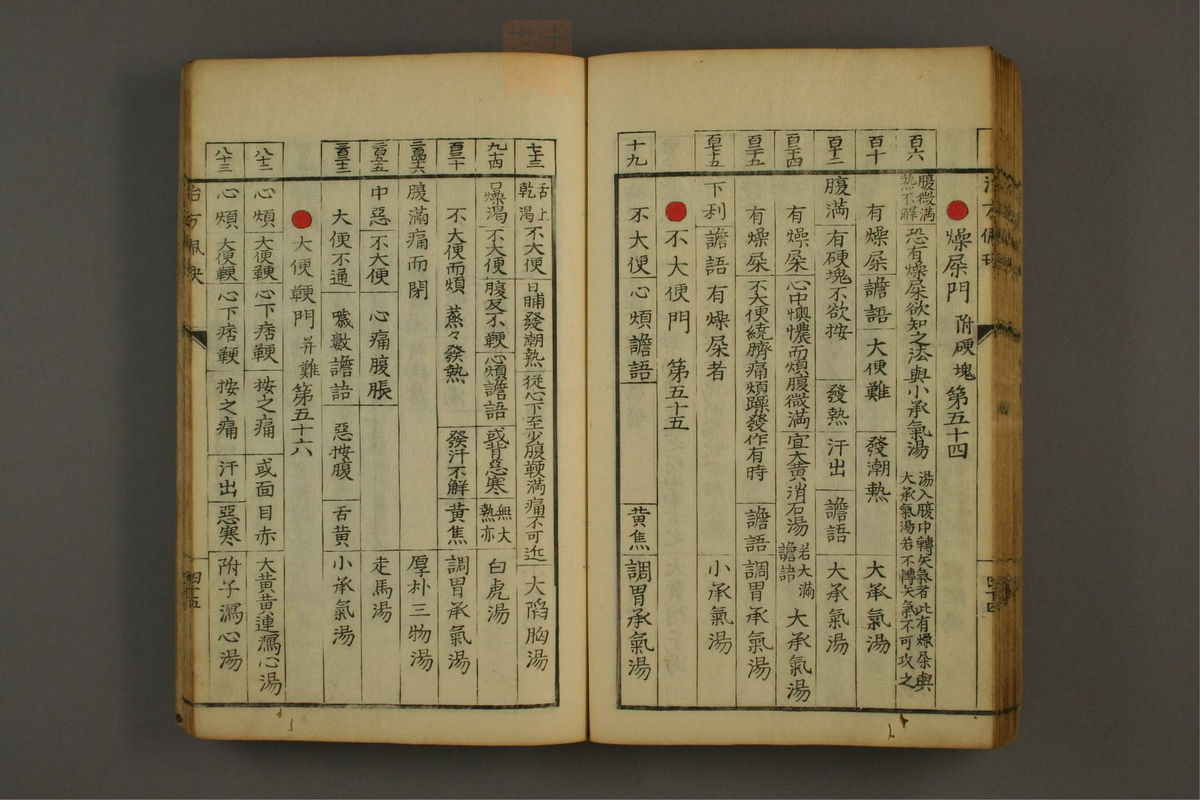 燥屎門 附硬塊 第五十四
百六 腹微滿熱不解 恐有燥屎欲知之法與小承氣湯 湯入腹中轉矢氣者此有燥屎與大承氣湯若不轉矢氣不可攻之
百十 有燥屎 譫語 大便難 發潮熱 大承氣湯
腹滿 有硬塊不欲按 發熱 汗出 譫語 大承氣湯
有燥屎 心中懊憹而煩腹微滿 宜大黃消石湯 若大滿譫語 大承氣湯
有燥屎 不大便繞臍痛煩躁發作有時 譫語 調胃承氣湯
下利 譫語 有燥屎者 小承氣湯
不大便門 第五十五
十九 不大便 心煩譫語 黃焦 調胃承氣湯
七十三 舌上乾渴 不大便 日晡發潮熱 從心下至少腹鞕滿痛不可近 大陷胸湯
九十四 口燥渴 不大便 腹反不鞕 心煩譫語 或背惡寒 無大熱亦 白虎湯
不大便而煩 蒸々發熱 發汗不解 黃焦 調胃承氣湯
腹滿痛而閉 厚朴三物湯
中惡 不大便 心痛腹脹 走馬湯
大便不通 噦數譫語 惡按腹 舌黃 小承氣湯
大便鞕門 并難 第五十六
八十二 心煩 大便鞕 心下痞鞕 按之痛 或面目赤 大黃黃連瀉心湯
八十三 心煩 大便鞕 心下痞鞕 按之痛 汗出 惡寒 附子瀉心湯
四十五